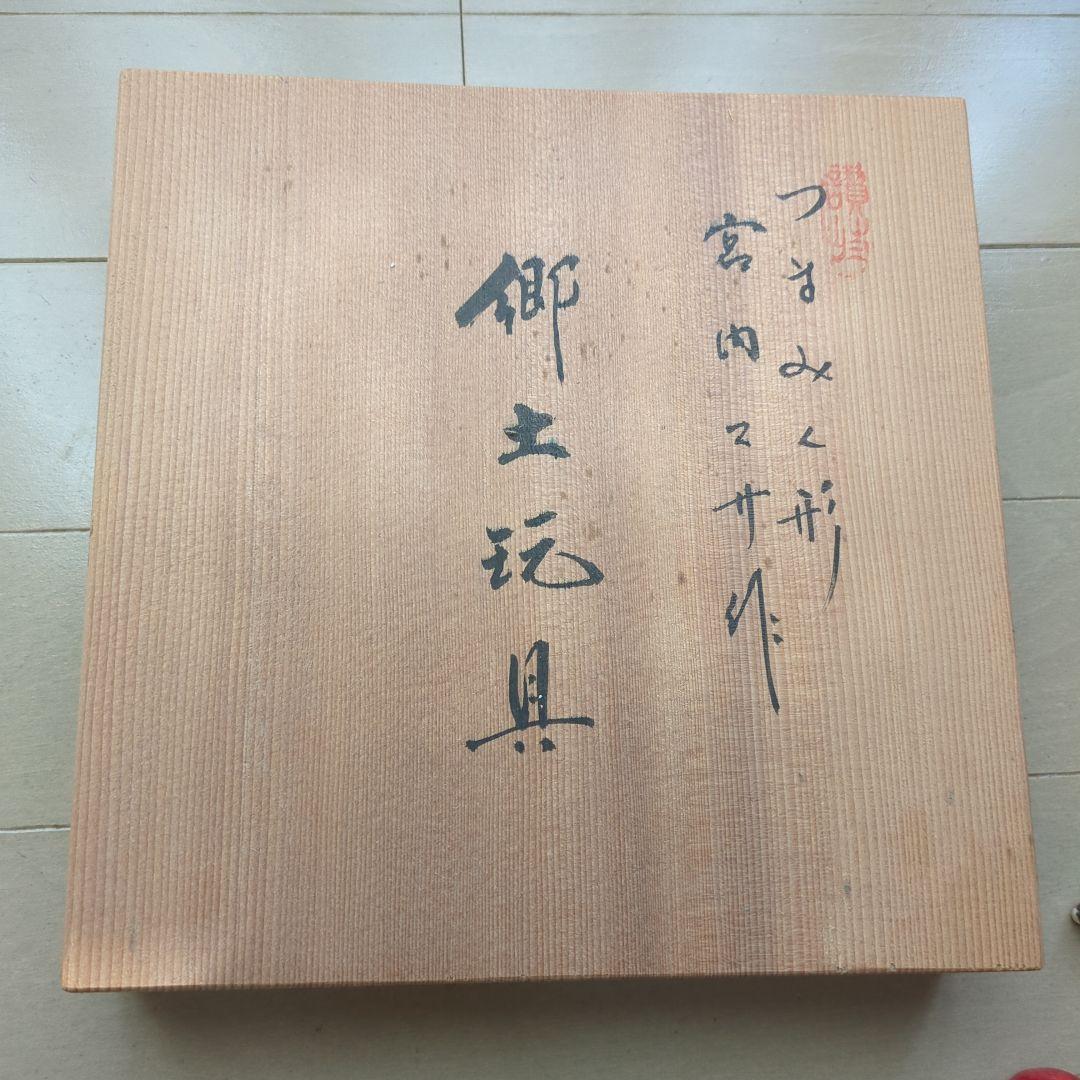 つまみ人形
宮内マサ作
郷土玩具